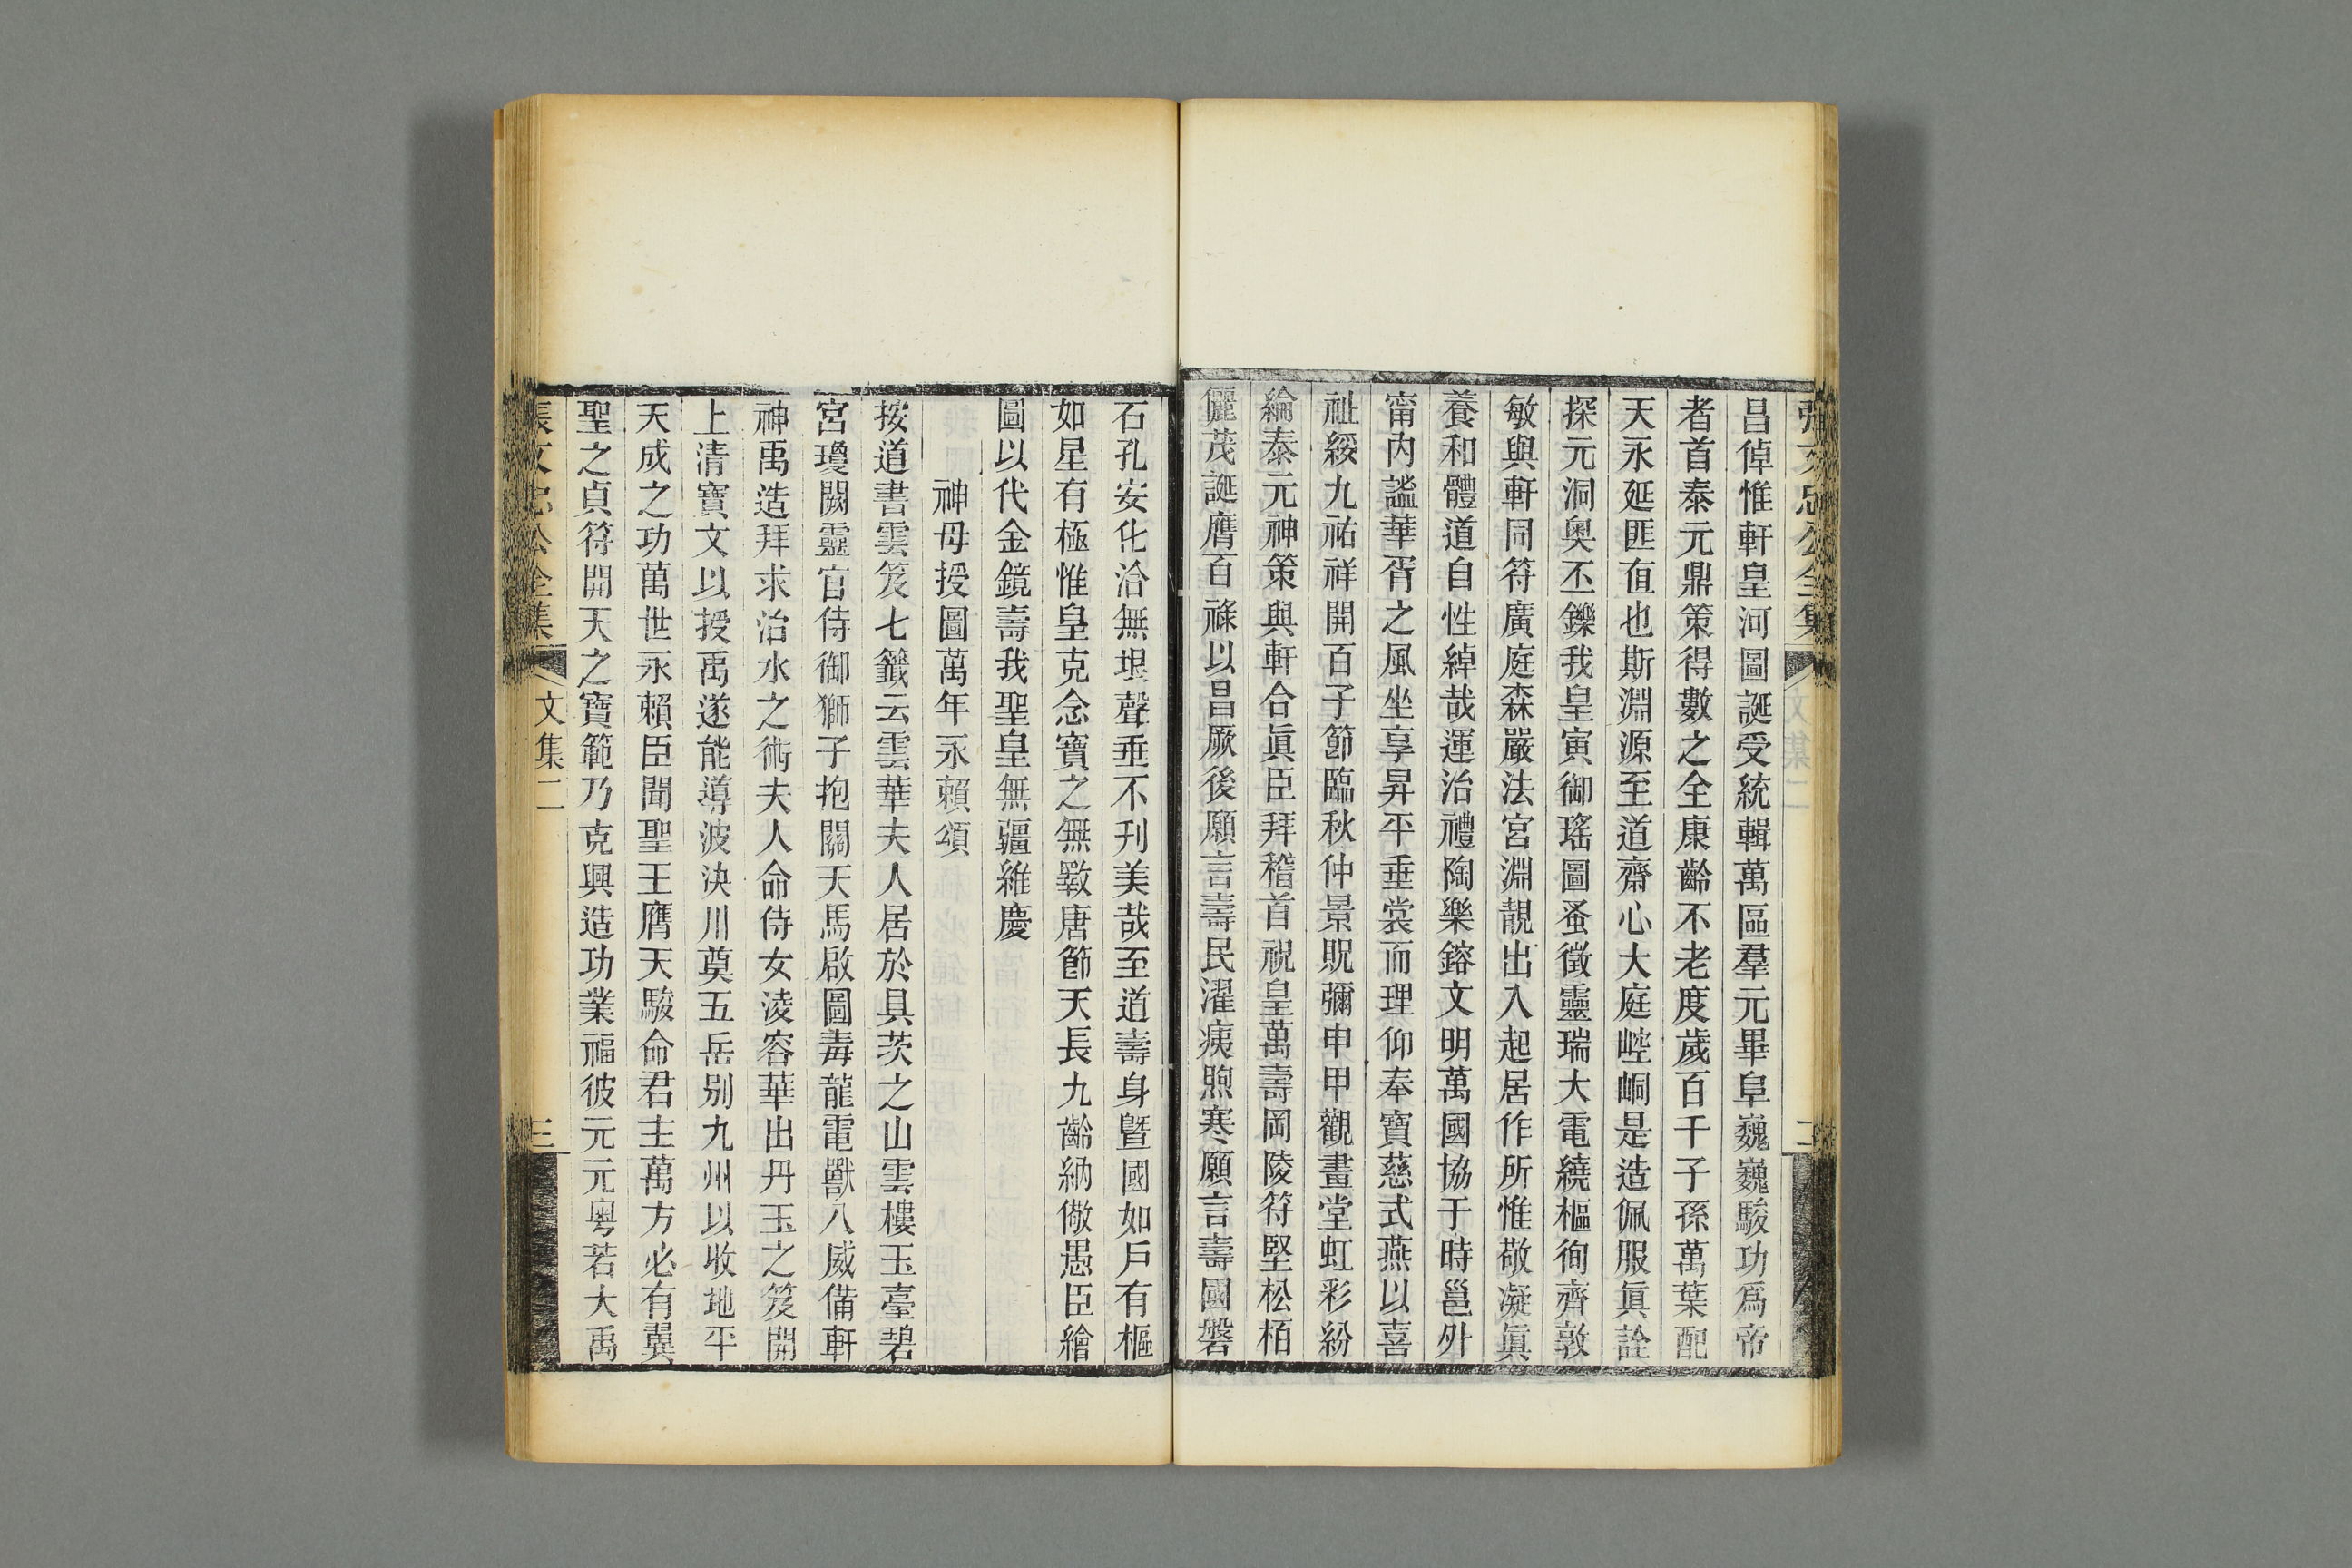 張文忠公全集 文集二 二
昌倬惟軒皇河圖誕受統輯萬區羣元畢阜巍巍駿功爲帝
者首泰元鼎策得數之全康齡不老度歲百千子孫萬葉配
天永延匪亶也斯淵源至道齋心大庭崆峒是造佩服眞詮
探元洞奥丕鑠我皇寅御瑤圖蚤徵靈瑞大電繞樞徇齊敦
敏與軒同符廣庭森嚴法宮淵靚出入起居作所惟敬凝眞
養和體道自性綽哉運治禮陶樂鎔文明萬國協于時邕外
甯內謐華胥之風坐享昇平垂裳而理仰奉寶慈式燕以喜
祉綏九祐祥開百子節臨秋仲景貺彌申甲觀畫堂虹彩紛
綸泰元神策與軒合眞臣拜稽首祝皇萬壽岡陵符堅松栢
儷茂誕膺百祿以昌厥後願言壽民濯痍煦寒願言壽國磐
石孔安化洽無垠聲垂不刊美哉至道壽身曁國如戶有樞
如星有極惟皇克念寶之無斁唐節天長九齡納儆愚臣繪
圖以代金鏡壽我聖皇無疆維慶
神母授圖萬年永賴頌
按道書雲笈七籤云雲華夫人居於具茨之山雲樓玉臺碧
宮瓊闕靈官侍御獅子抱關天馬啟圖毒龍電獸八威備軒
神禹造拜求治水之術夫人命侍女淩容華出丹玉之笈開
上清寶文以授禹遂能導波決川奠五岳別九州以收地平
天成之功萬世永賴臣聞聖王膺天駿命君主萬方必有翼
聖之貞符開天之寶範乃克興造功業福彼元元粤若大禹
張文忠公全集 文集二 三